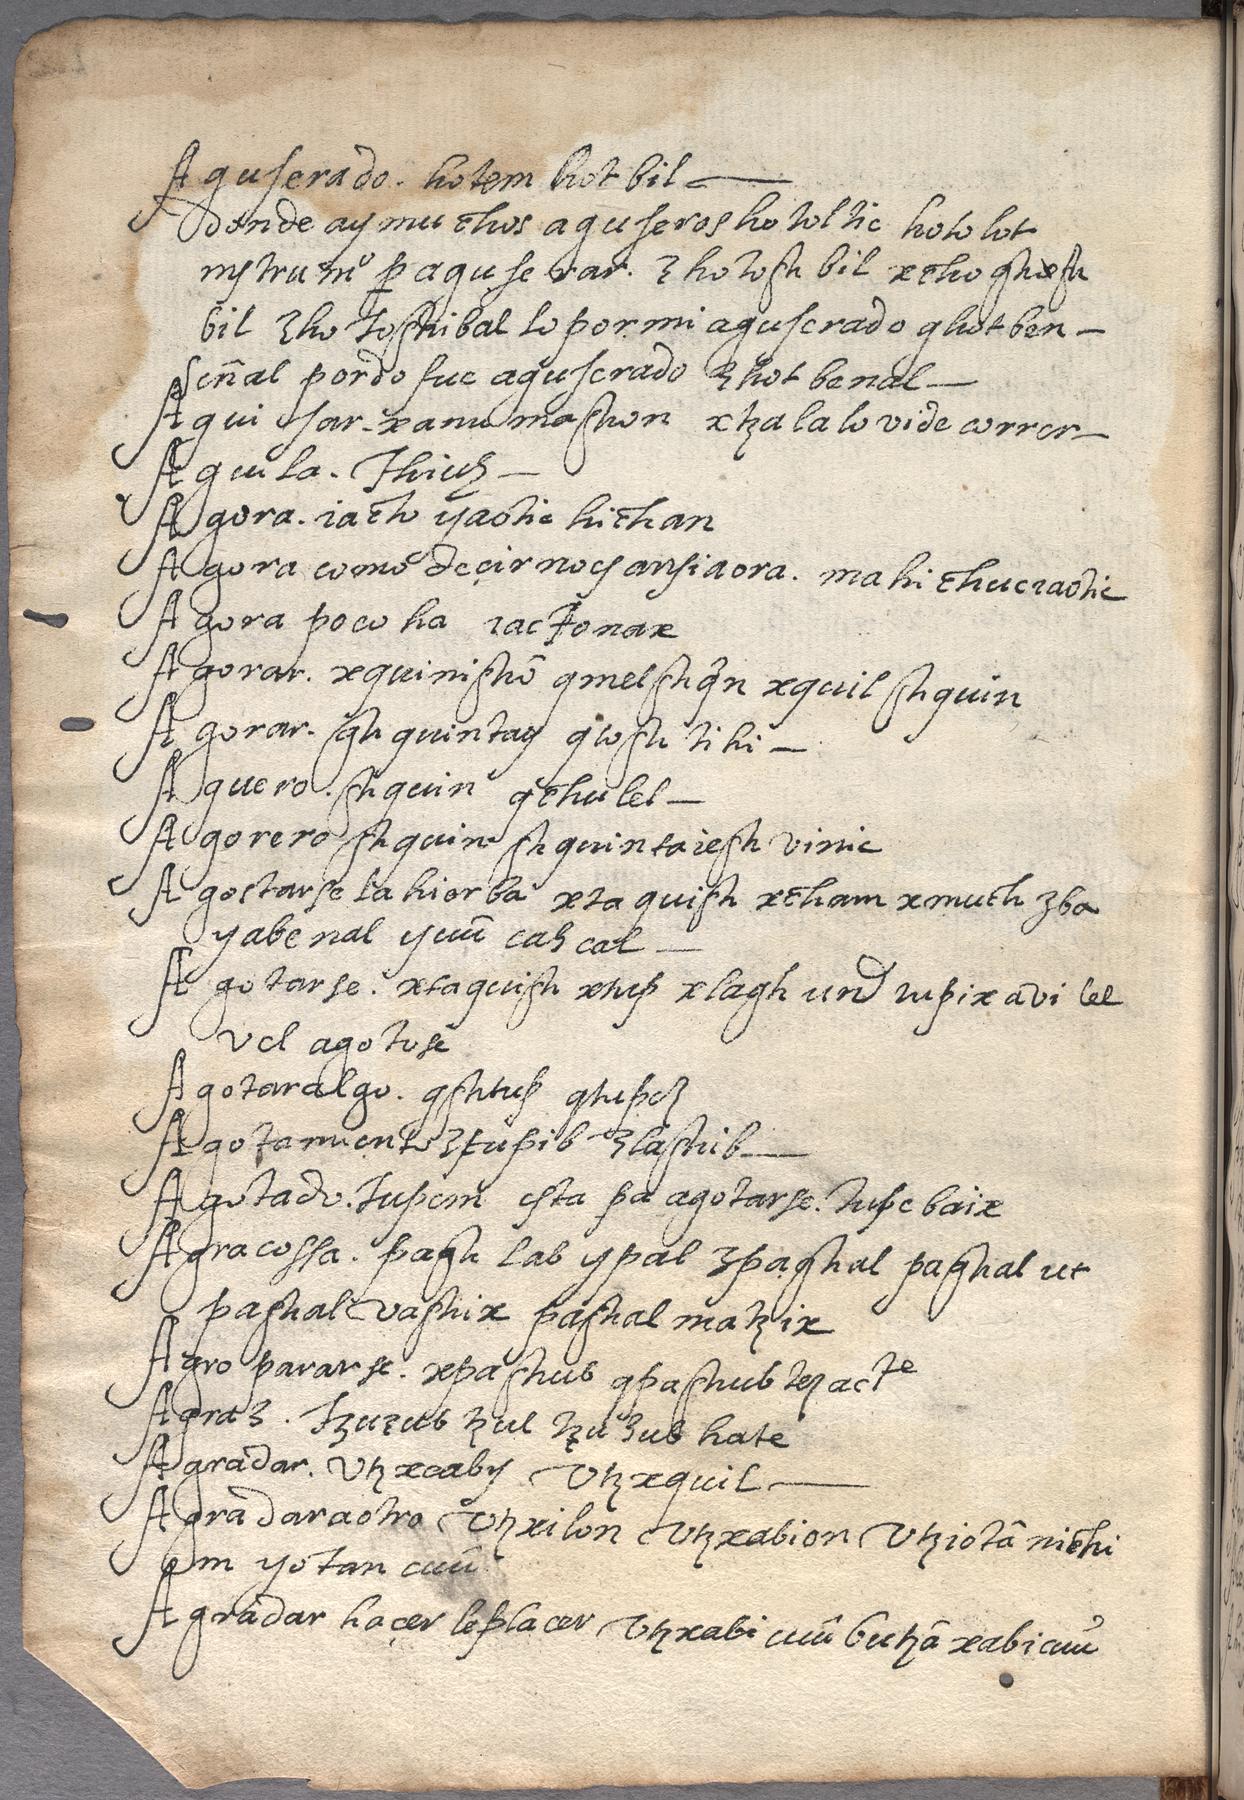 Aguserado. hotem hotbil
donde ay muchos aguseros hotoltic hotolot
ynstrum^o p̱ aguserar. zhotogh bil xchoghxogh
bil zhotoghibal lo por mi aguserado qhotben
señal por do fue aguserado zhotbenal
Aqui sar. xanumaghon xtzala lo vide correr
Aguila. Thiuh
Agora. iacto yaotic hichan
Agora como decir no es ansi aora. ma hichuc iaotic
Agora poco ha iactonax
Agorar. xquinighō qmelghqⁿn xquil ghquin
Agorar. gh quintay qlogh tihi
Aguero. ghquin qchulel
Agorero ghquin ghquintaiegh vinic
Agostarse la hierba xtaquigh xcham xmuch zba
yabenal yuū cahcal
Agotarse. xtaquigh xtup xlagh und tupix avi lel
vel agotose
Agotar algo. qghtup qtupez
Agotamiento ztupib zlaghib
Agotado. tupem esta pa agotarse. tupebaix
Agra cossa. pagh lab ypal zpaghal paghal ut
paghal vaghix paghal matzix
Agro pararse. xpaghub qpaghubtez acte
Agraz. tzuzub tzul tzuzub hate
Agradar. vtzxcaby vtzxquil
Agradar a otro vtzxilon vtzxabion vtziotā nichi
om yotan cuū
Agradar hacerle placer vtzxabi cuū butzā xabi cuū